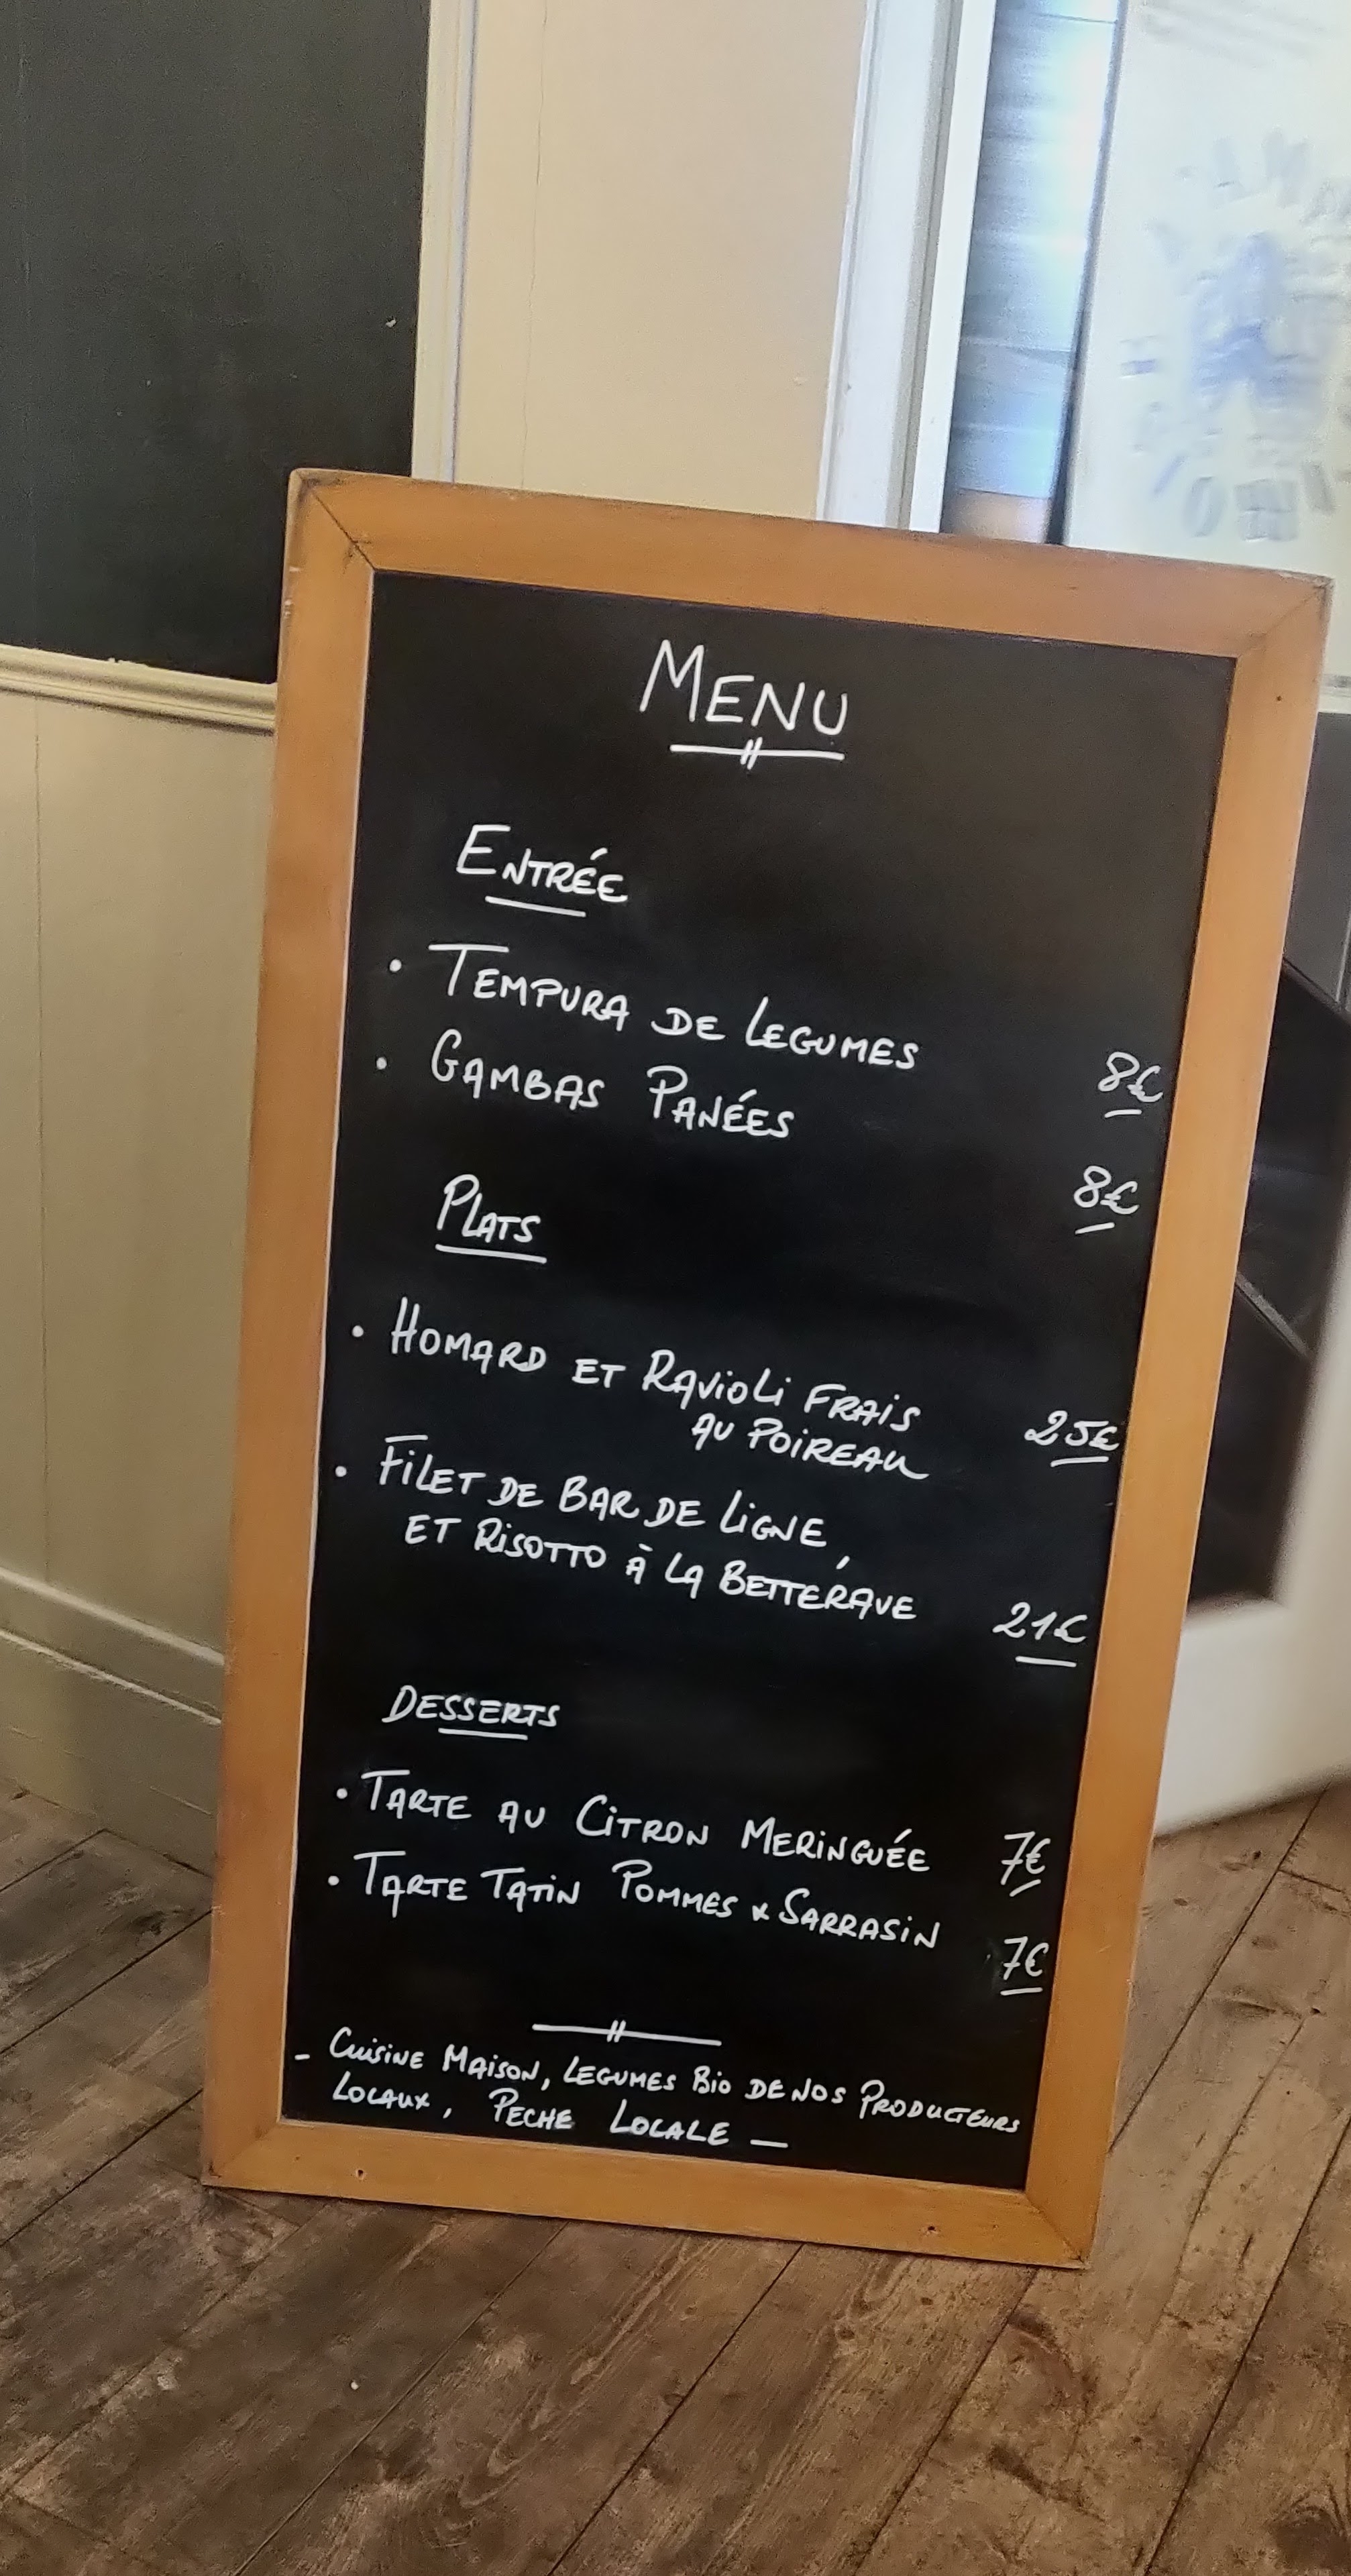 MENU
ENTRÉE
• TEMPURA DE LEGUMES 8€
• GAMBAS PANÉES 8€
PLATS
• HOMARD ET RAVIOLI FRAIS
AU POIREAU 25€
• FILET DE BAR DE LIGNE,
ET RISOTTO À LA BETTERAVE 21€
DESSERTS
• TARTE AU CITRON MERINGUÉE 7€
• TARTE TATIN POMMES & SARRASIN 7€
- CUISINE MAISON, LEGUMES BIO DE NOS PRODUCTEURS
LOCAUX, PECHE LOCALE -